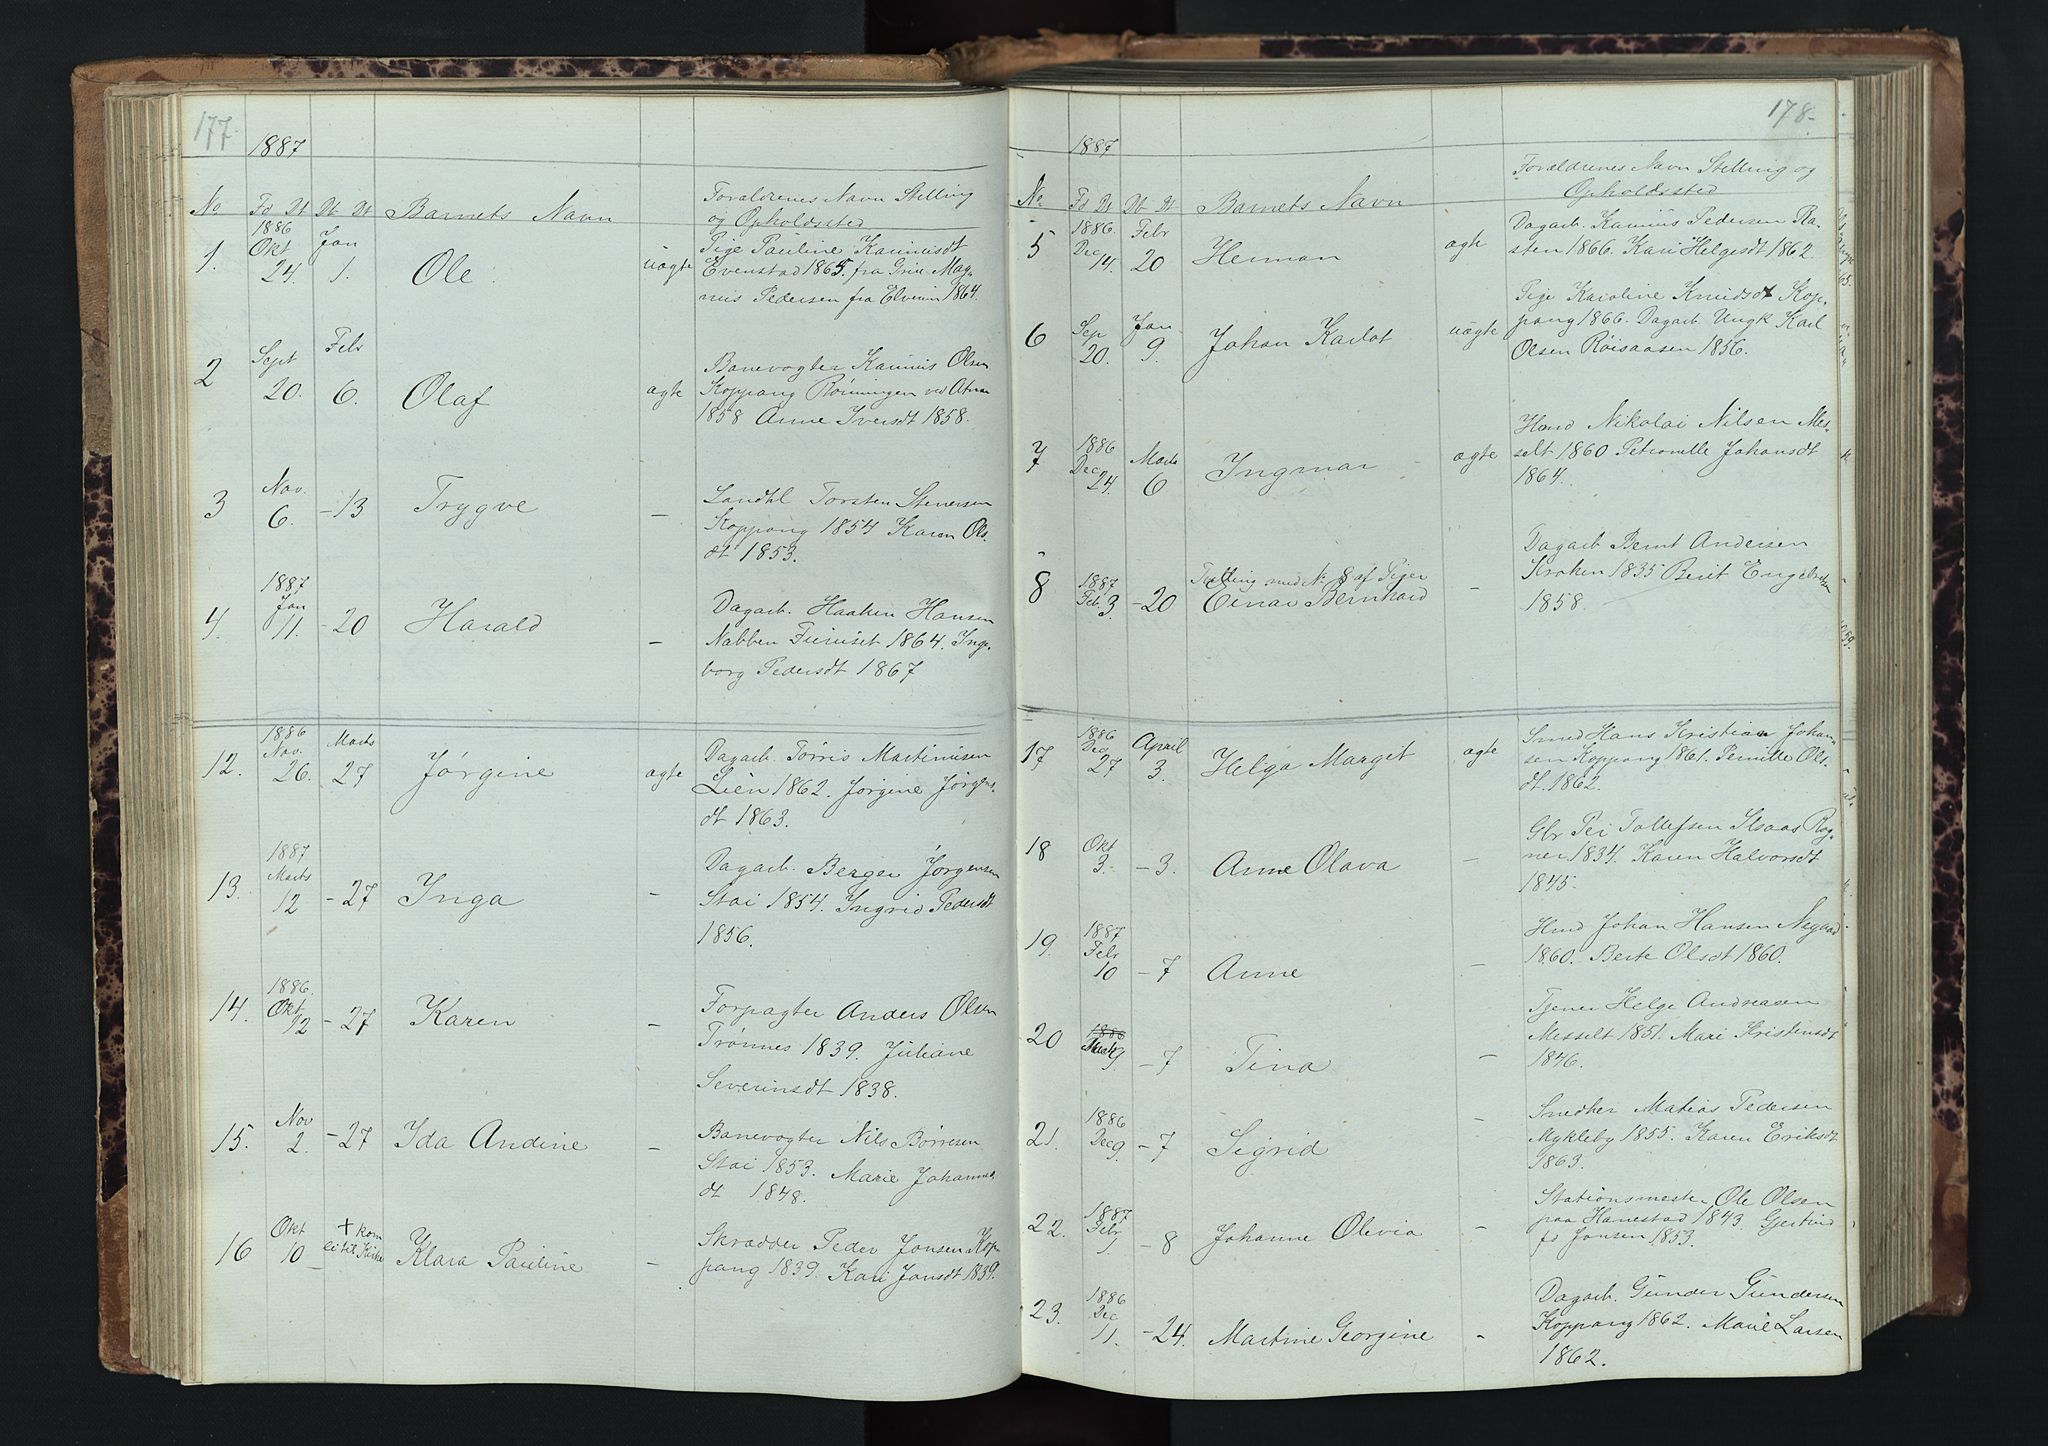 177
1887
No Fd Dt Db Dt Barnets Navn
Forældrenes Navn Stilling
og Opholdssted
1. 1886 Okt 24. Jan 1. Ole uægte
Pige Pauline Karinusdt
Evenstad 1865. fra Grue Mag-
nus Pedersen fra Elverum 1864.
2 Sept 20. Febr 6. Olaf ægte
Banevogter Karinus Olsen
Koppang Rønningen ved Atna
1858 Anne Iversdt 1858.
3 Nov. 6. -13 Trygve -
Landhl Torsten Stenersen
Koppang 1854 Karen Ols-
dt 1853.
4. 1887 Jan 11. -20 Harald -
Dagarb. Haaken Hansen
Nabben Furuset 1864. Inge-
borg Pedersdt 1867
12. 1886 Nov. 26. Marts 27 Jørgine ægte
Dagarb. Tørris Martinusen
Lien 1862. Jørgine Jørgens-
dt 1863.
13. 1887 Marts 12 -27 Inga -
Dagarb. Berger Jørgensen
Stai 1854. Ingrid Pedersdt
1856.
14. 1886. Okt 12 -27 Karen -
Forpagter Anders Olsen
Trønnes 1839. Juliane
Severinsdt 1838.
15. Nov 2. -27 Ida Andine -
Banevogter Nils Børresen
Stai 1853. Marie Johannes-
dt 1848.
16 Okt 10 + kom ei til Kirke Klara Pauline -
Skrædder Peder Jonsen Kop-
pang 1839. Kari Jonsdt 1839.
178-
1887
No Fd Dt Db Dt Barnets Navn
Forældrenes Navn Stilling og
Opholdssted
5 1886. Dec 14. Febr 20 Herman ægte
Dagarb. Karinus Pedersen Ra-
sten 1866. Kari Helgesdt 1862.
6 Sep 20. Jan 9. Johan Karlot uægte
Pige Karoline Knudsdt Kop-
pang 1866. Dagarb. Ungk Karl
Olsen Røisaasen 1856.
7 1886 Dec 24. Marts 6 Ingmar ægte
Hmd Nikolai Nilsen Mes-
selt 1860 Petronille Johansdt
1864.
8 1887 Feb. 3. -20 Tvilling med No 8 af Piger
Einar Bernhard -
Dagarb Bernt Andersen
Kroken 1835 Berit Engebretsen
1858.
17 1886 Dec 27 April 3. Helga Marget ægte
Smed Hans Kristian Johan-
sen Koppang 1861. Pernille Ols-
dt. 1862.
18 Okt 3. -3. Anne Olava -
Gbr Per Tollefsen
1834. Karen Halvorsdt
1845.
19. 1887 Febr 10 -7 Anne -
Hmd Johan Hansen Nygaard
1860. Berte Olsdt 1860.
20 1886 9. -7 Tina -
Tjener Helge Andreasen
Messelt 1851. Mari Kristensdt
1846.
21. 1886 Dec 9. -7 Sigrid -
Snedker Matias Pedersen
Mykleby 1855. Karen Eriksdt
1863.
22. 1887 Febr 1 -8 Johanne Olivia -
Stationsmester Ole Olsen
paa Hanestad 1843. Gjertrud
fd Jonsen 1853.
23. 1886 Dec 11. -24. Martine Georgine -
Dagarb. Gunder Gundersen
Koppang 1862. Marie Larsen
1862.